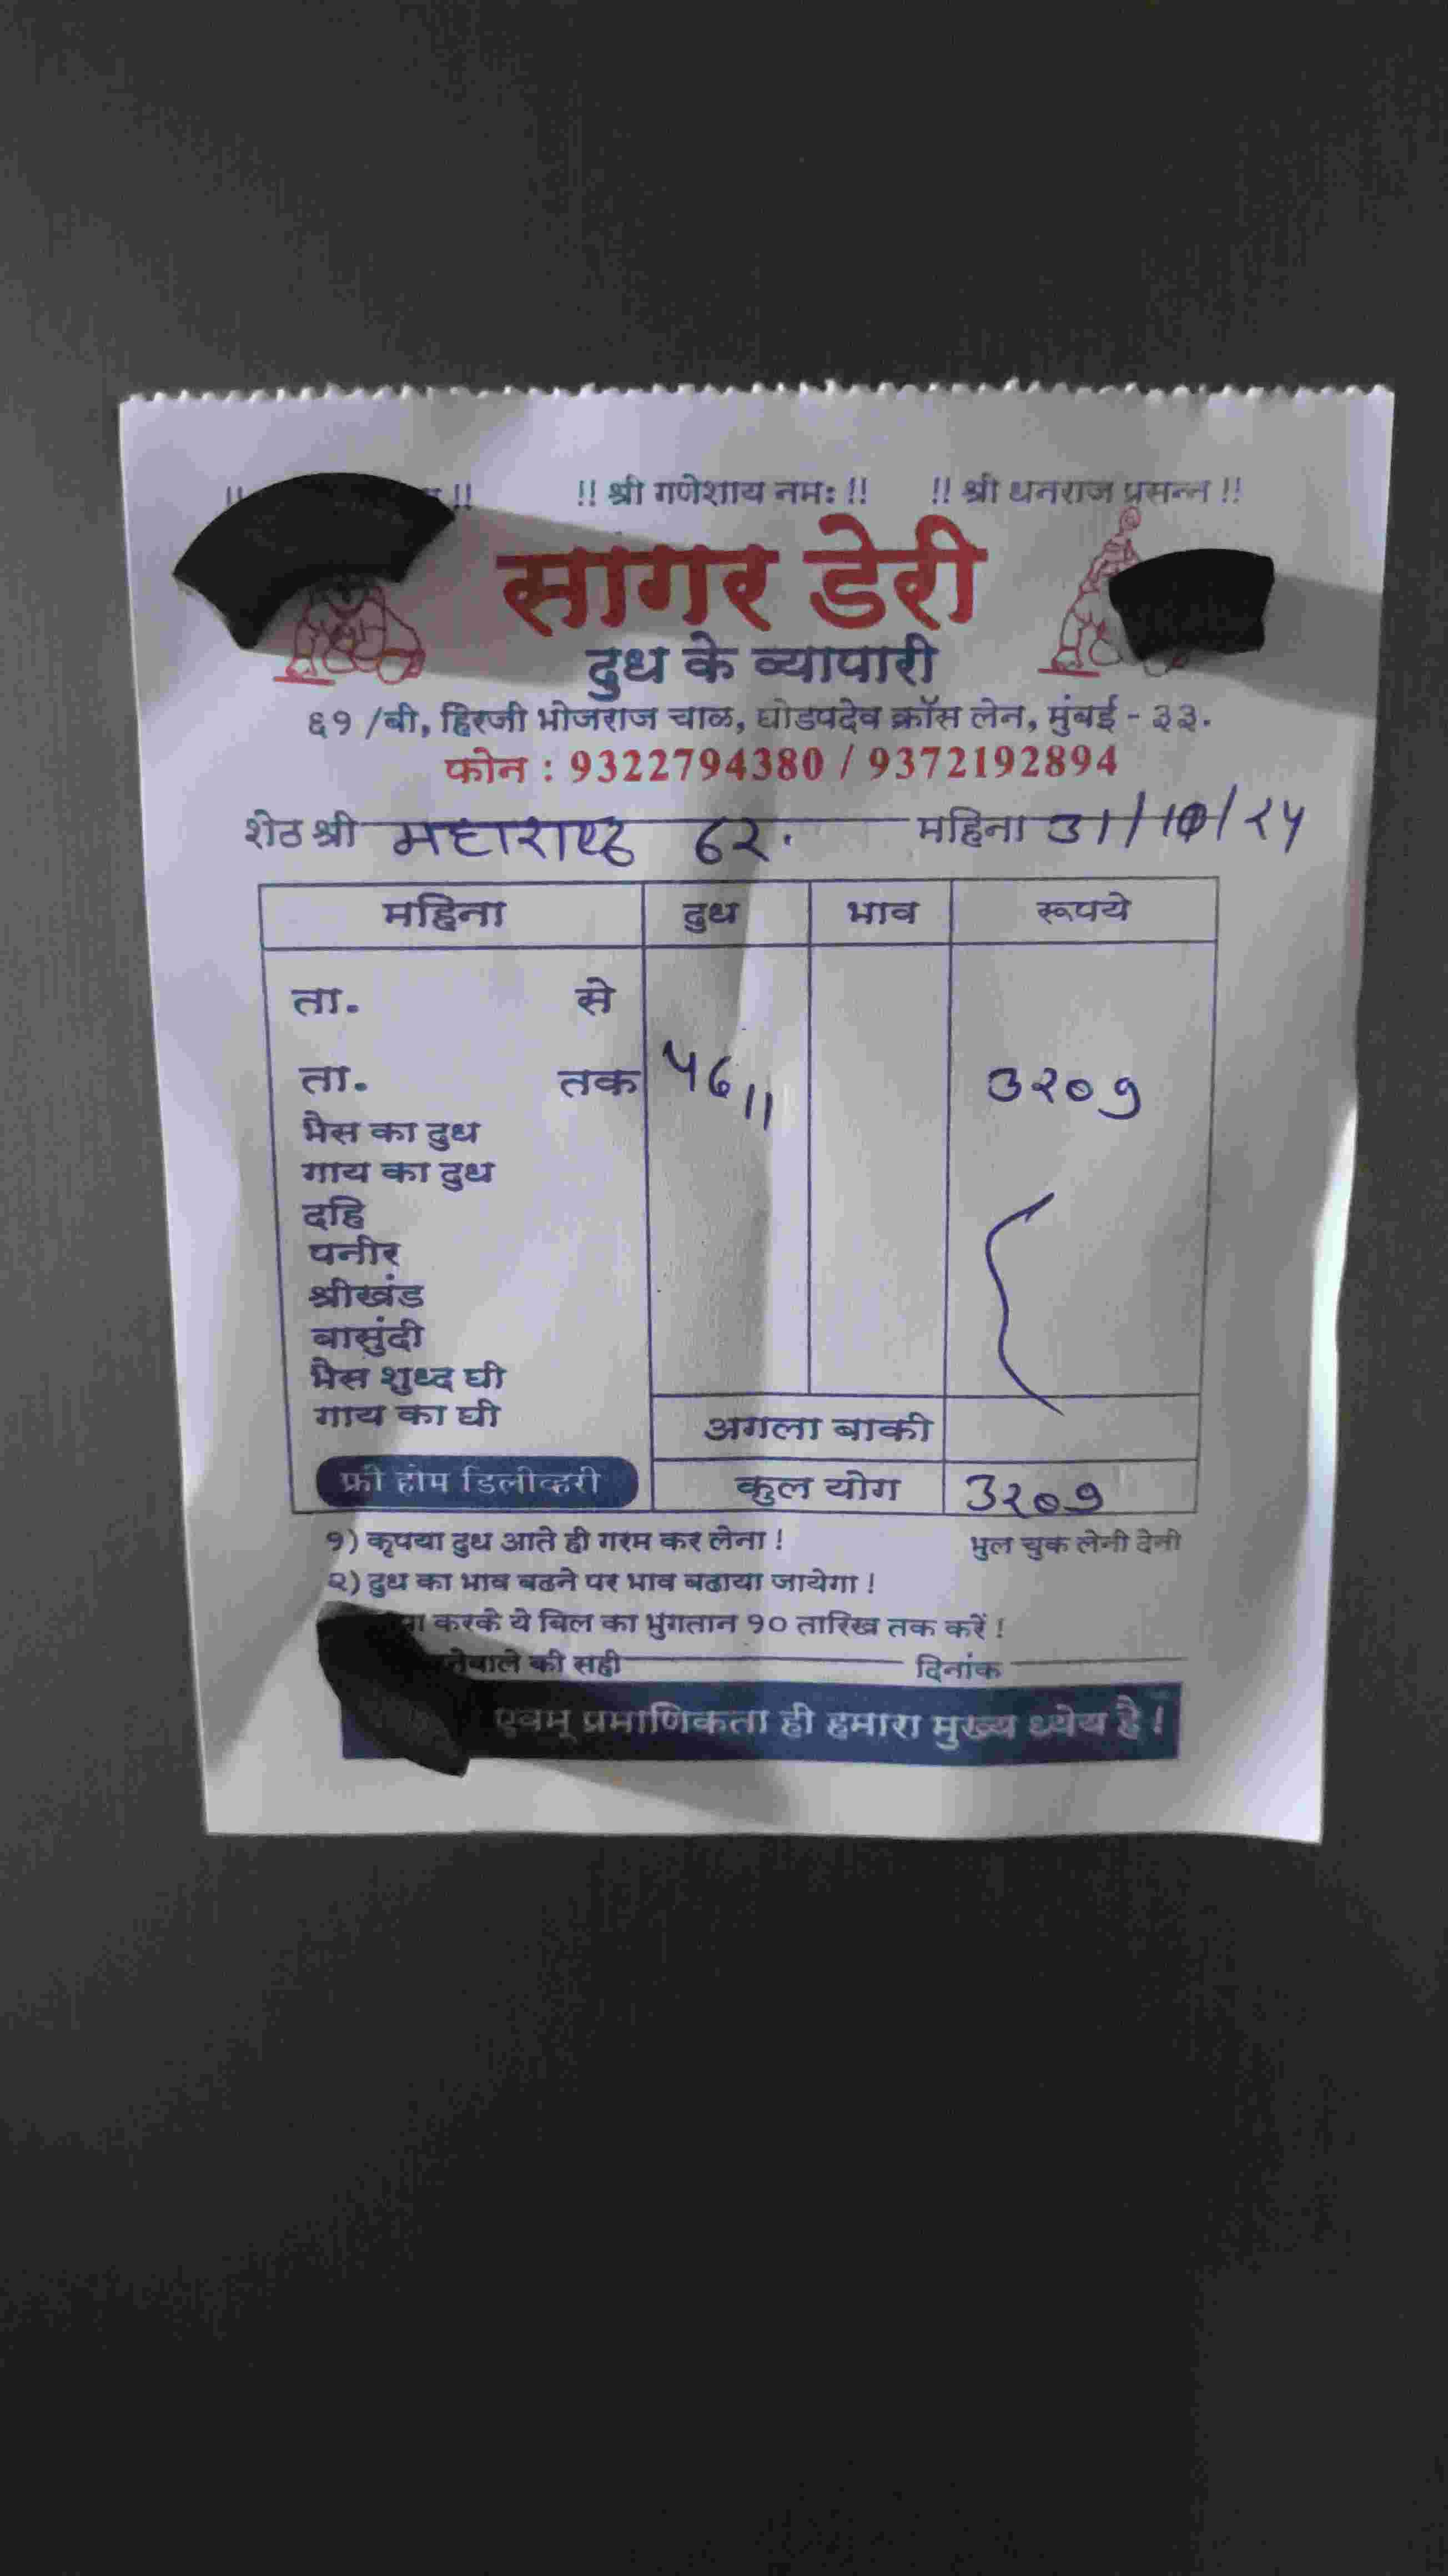 !! !!
!! श्री गणेशाय नमः !!
!! श्री धनराज प्रसन्न !!
सागर डेरी
दुध के व्यापारी
६१ /बी, हिरजी भोजराज चाळ, घोडपदेव क्रॉस लेन, मुंबई - ३३.
फोन : 9322794380 / 9372192894
शेठ श्री महाराष्ट्र ८२. महिना 31/10/२५
महिना दुध भाव रूपये
ता. से
ता. तक ५८॥ ३२०१
भैस का दुध
गाय का दुध
दहि
पनीर
श्रीखंड
बासुंदी
भैस शुध्द घी
गाय का घी
अगला बाकी
फ्री होम डिलीव्हरी
कुल योग ३२०१
१) कृपया दुध आते ही गरम कर लेना !
भुल चुक लेनी देनी
२) दुध का भाव बढने पर भाव बढाया जायेगा !
करके ये बिल का भुगतान १० तारिख तक करें !
की सही दिनांक
एवम् प्रमाणिकता ही हमारा मुख्य ध्येय है !